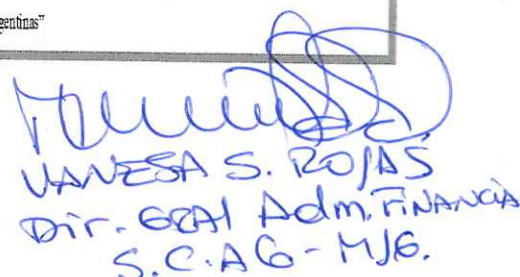 gentinas"
VANESA S. ROJAS
Dir. GRAl Adm. FINANCIA
S.C.AG - MJG.